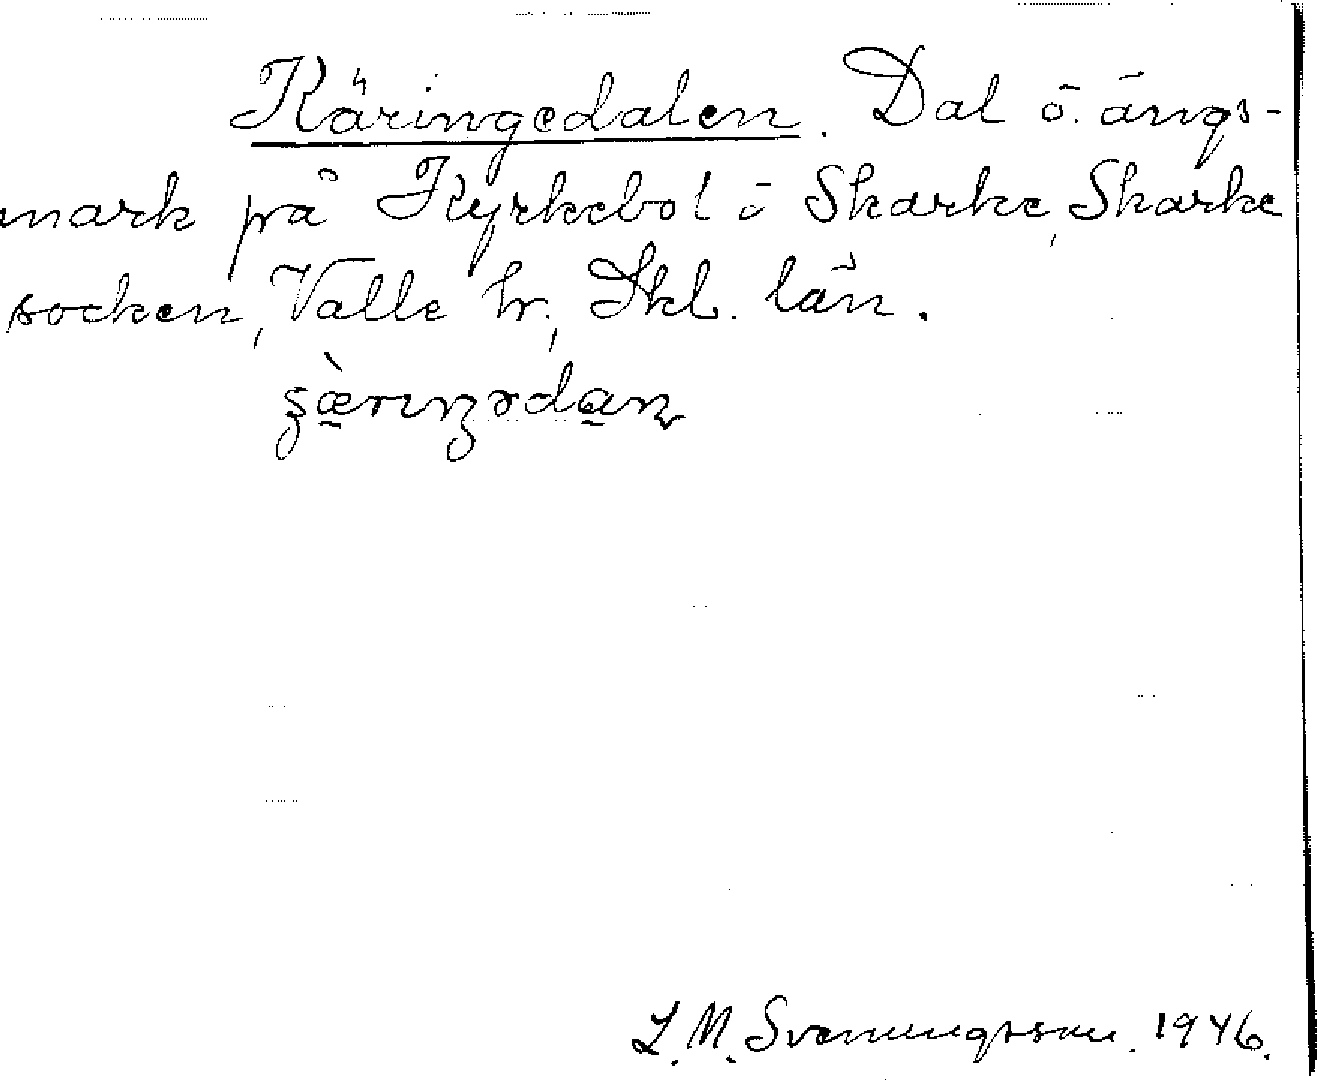 Käringedalen. Dal ö. ängs-
mark på Kyrkebol i Skarke, Skarke
socken, Valle hr, Skl. län.
L. M. Svenungsson. 1946.